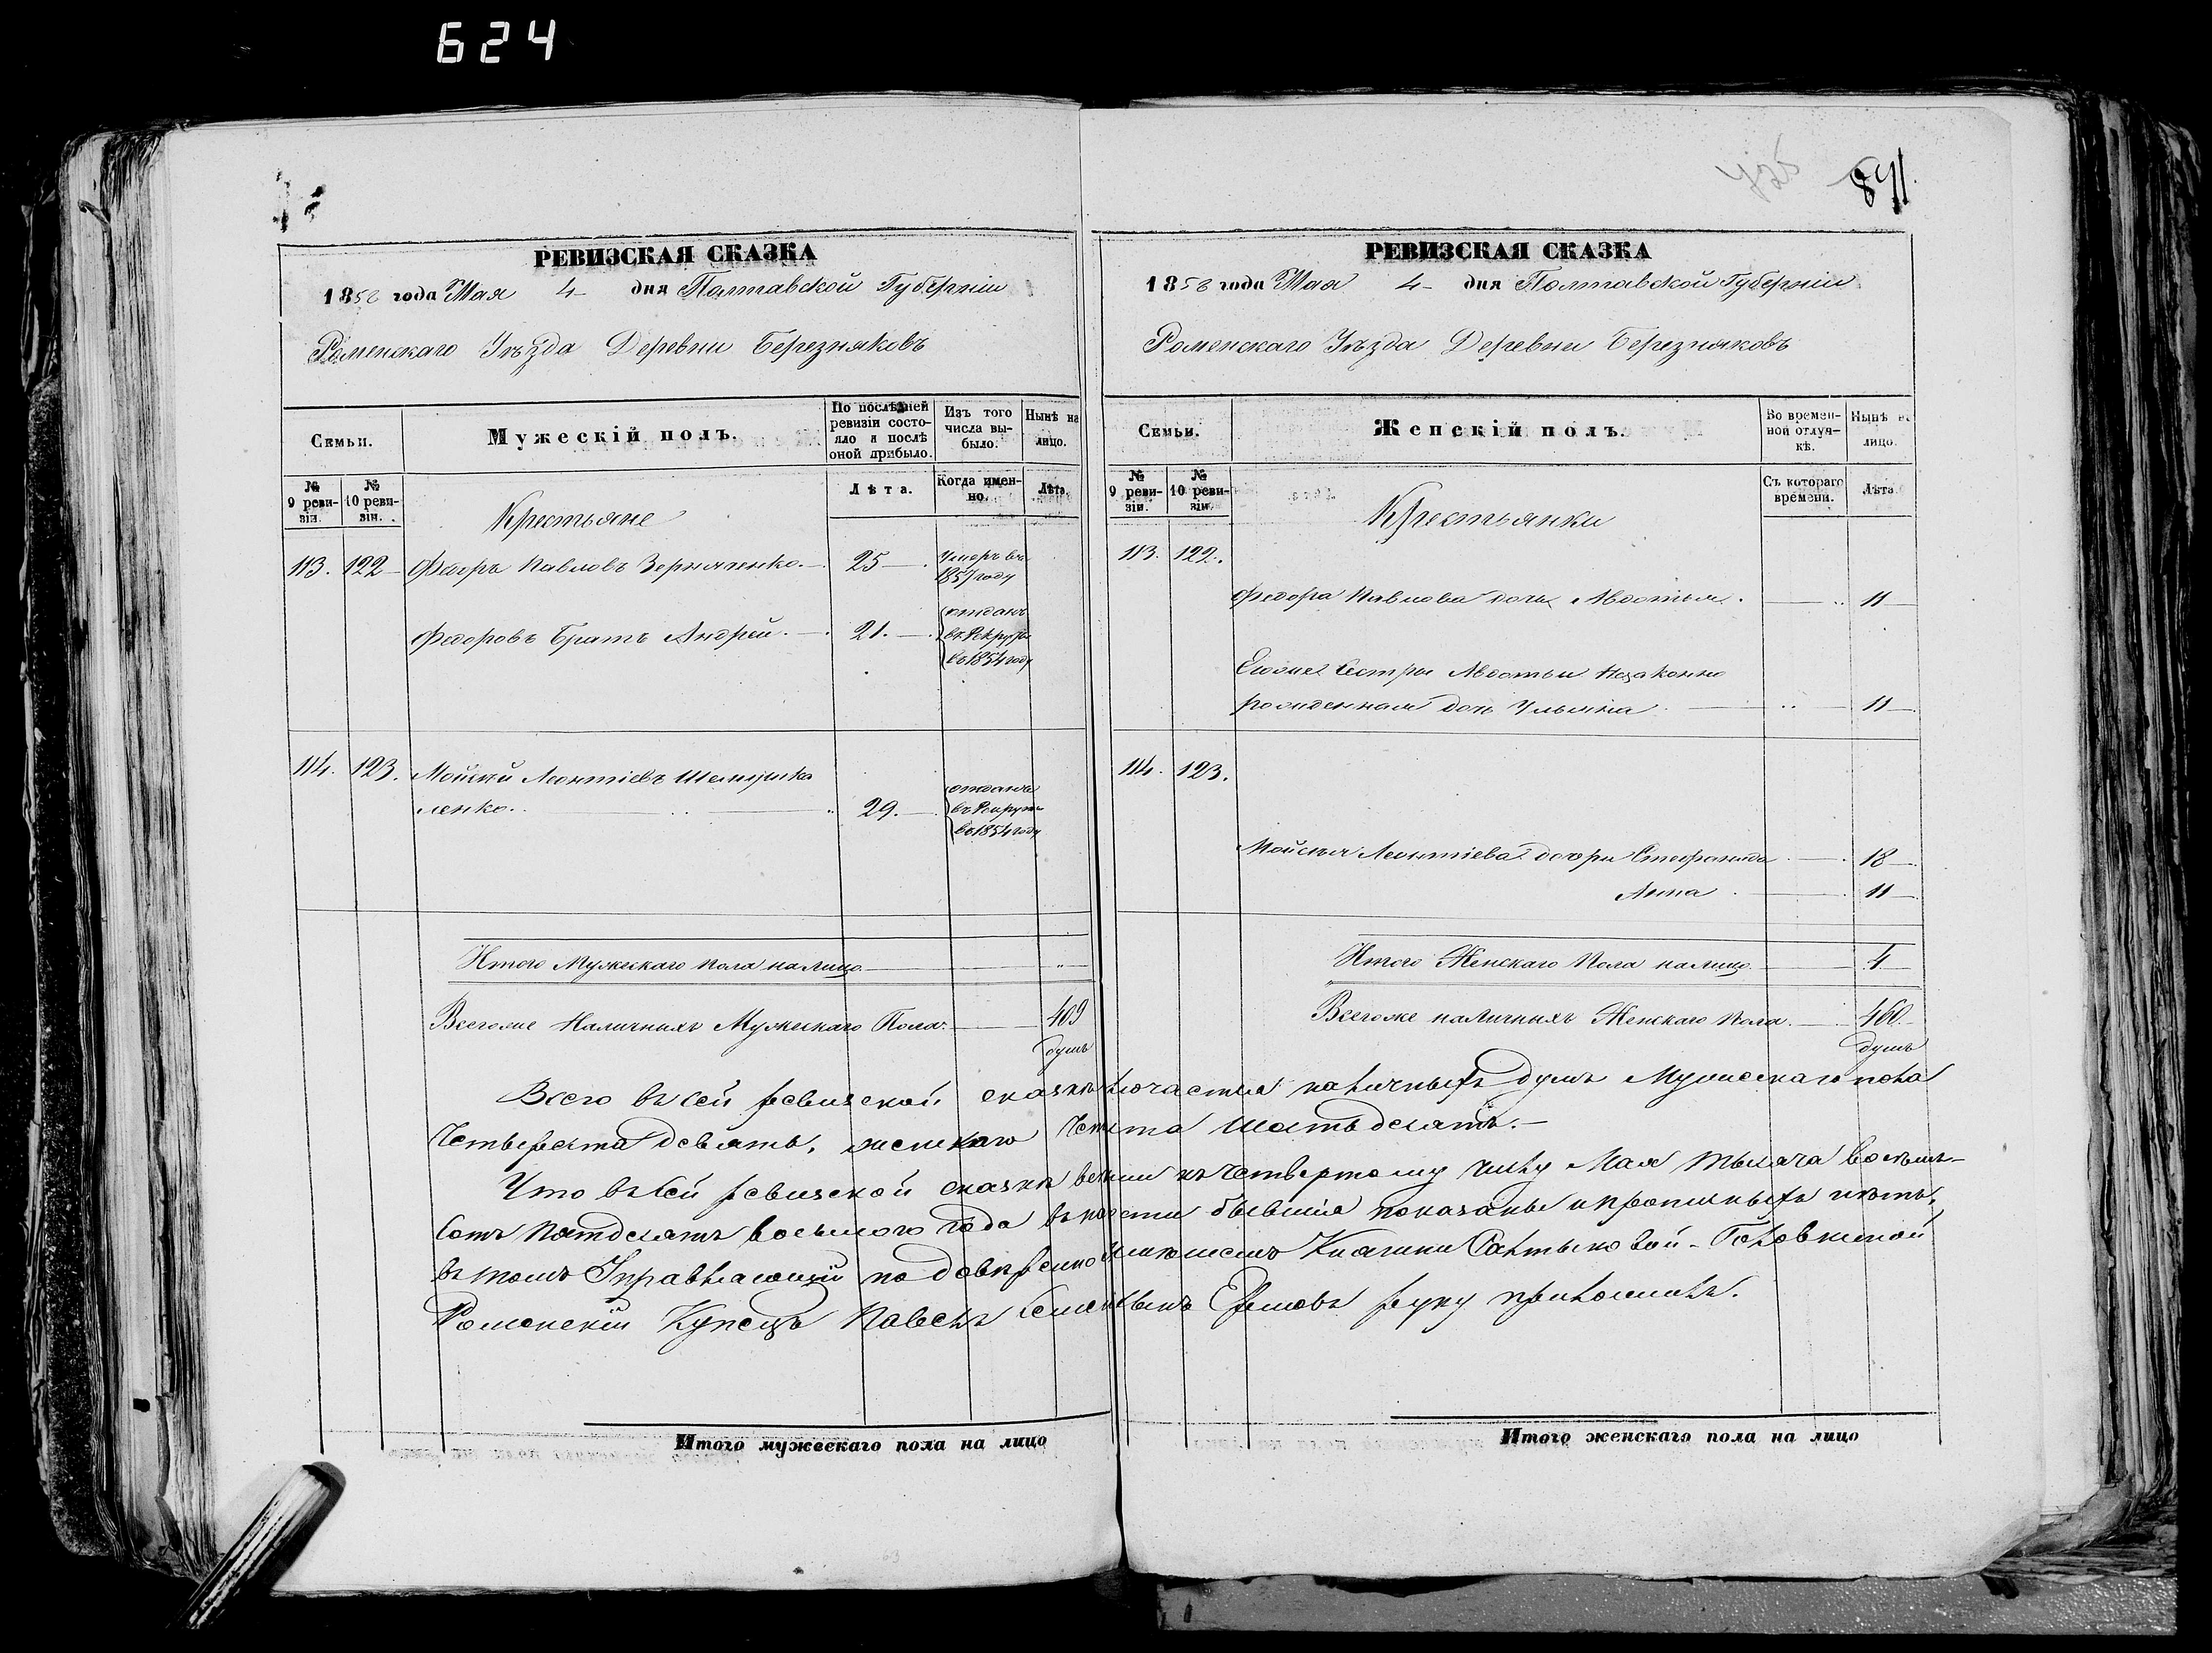 624
РЕВИЗСКАЯ СКАЗКА
1858 года Мая 4 дня Полтавской Губерніи
Роменскаго Уѣзда Деревни Березняковъ
Семьи.
Мужескій полъ.
По послѣдней ревизіи состояло и послѣ оной прибыло.
Изъ того числа выбыло.
Нынѣ на лицо.
№ 9 ревизіи.
№ 10 ревизіи.
Лѣта.
Когда именно.
Лѣта.
Крестьяне
113. 122 Федоръ Павловъ 25 Умеръ въ
1857 году
Федоровъ Братъ Андрей 21. отданъ
въ Рекруты
в 1854 году
114. 123. Мойсей Леонтіевъ Шелушпа
ленко. 29. отданъ
въ Рекруты
в 1854 году
Итого Мужескаго Пола налицо
Всегоже Наличныхъ Мужескаго Пола 409
душъ
725
841.
РЕВИЗСКАЯ СКАЗКА
1858 года Мая 4 дня Полтавской Губерніи
Роменскаго Уѣзда Деревни Березняковъ
Семьи.
Женскій полъ.
Во временной отлучкѣ.
Нынѣ на лицо.
№ 9 ревизіи.
№ 10 ревизіи.
Съ котораго времени.
Лѣта
Крестьянки
113. 122.
Федора Павлова дочь Авдотья 11
Егоже Сестры Авдотьи Незаконно
рожденная дочь Ульяна 11
114. 123.
Мойсея Леонтіева дочери Стефанида 18
Анна 11
Итого Женскаго Пола налицо 4
Всегоже наличныхъ Женскаго Пола 460
душъ
Всего въ сей ревизской сказкѣ наличныхъ душъ Мужескаго пола
Четыреста девять, женскаго Четыреста шестьдесятъ.
Что въ сей ревизской сказкѣ всѣ къ четвертому числу Мая тысяча восемь-
сотъ пятдесятъ восьмого года въ бывшіе показаны и прописныхъ нѣтъ,
въ томъ Управляющій по довѣренности Княгини Салтыковой-Головкиной
Роменскій Купецъ Павелъ Ершовъ руку приложилъ.
Итого мужескаго пола на лицо
Итого женскаго пола на лицо